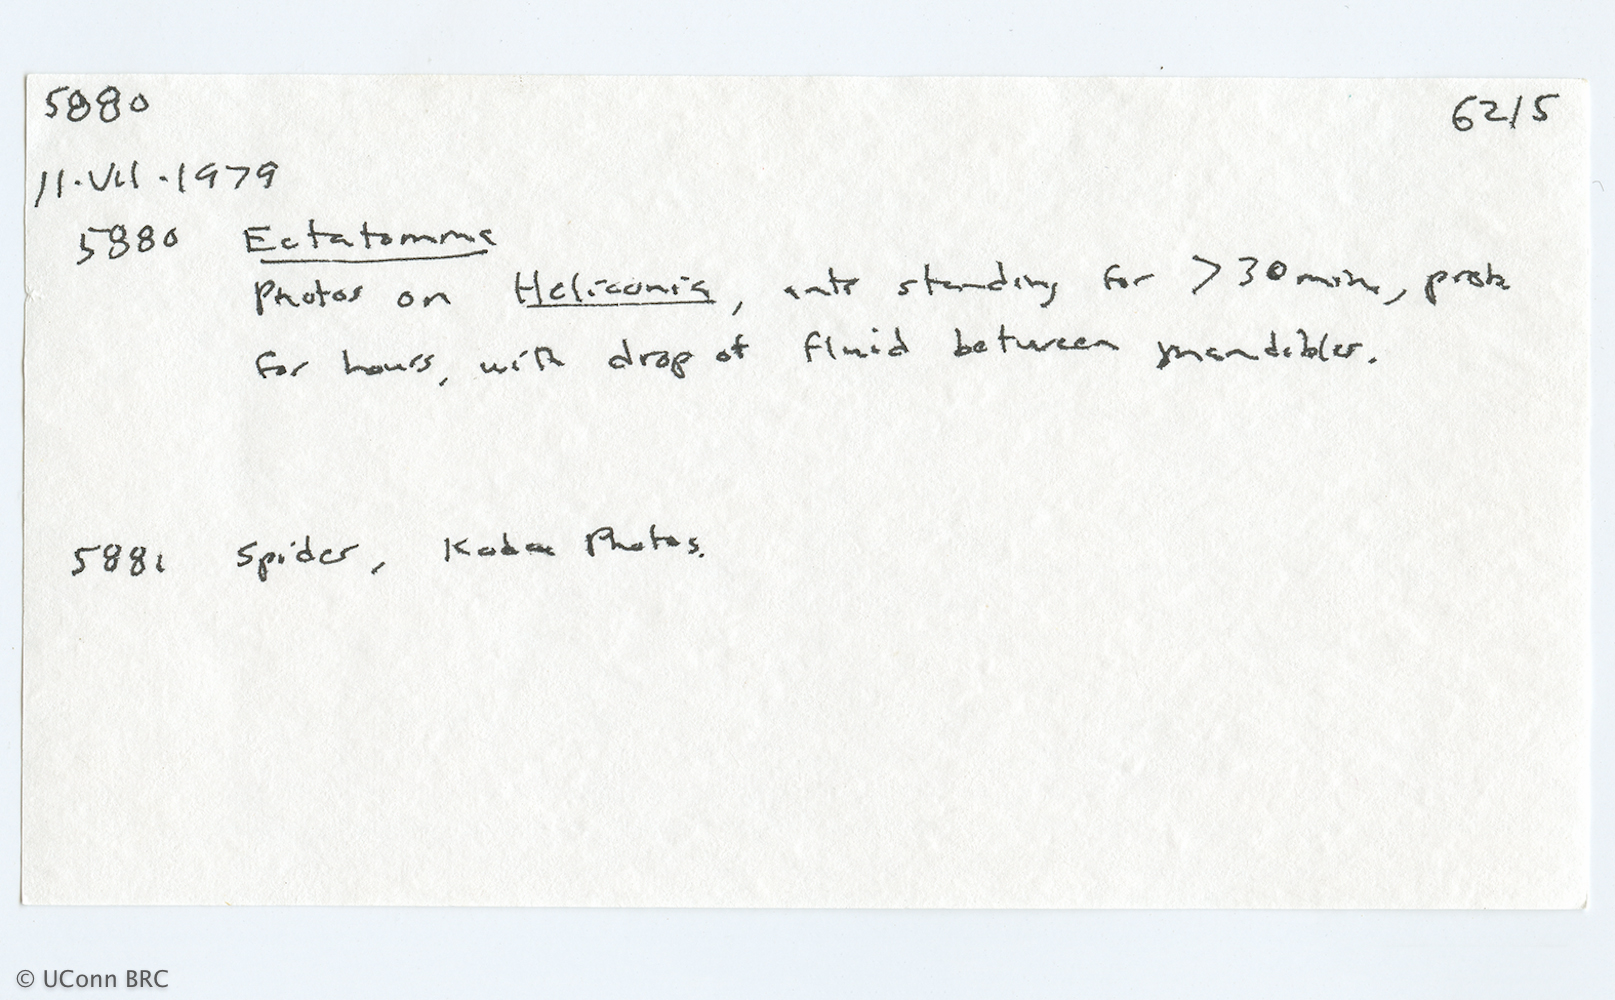 5880 6215
11·VII·1979
5880 Ectatomma
Photos on Heliconia, ants standing for >30 min, prob
for hours, with drop of fluid between mandibles.
5881 Spider, Photos.
© UConn BRC